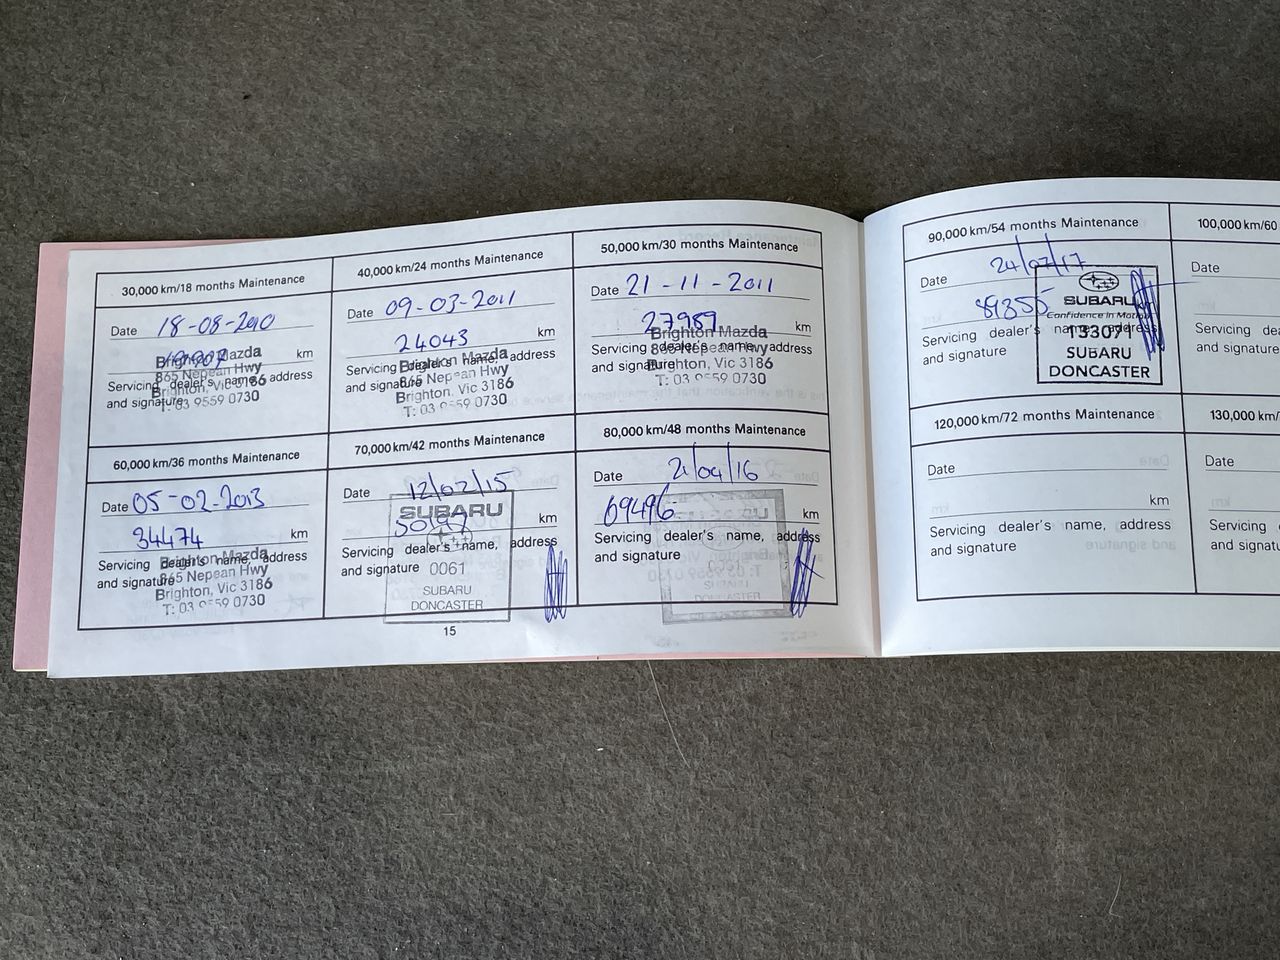 30,000 km/18 months Maintenance
Date 18-08-2010
km
Brighton Mazda
865 Nepean Hwy
Brighton, Vic 3186
T: 03 9559 0730
Servicing dealer's name, address
and signature
40,000 km/24 months Maintenance
Date 09-03-2011
24043 km
Brighton Mazda
865 Nepean Hwy
Brighton, Vic 3186
T: 03 9559 0730
Servicing dealer's name, address
and signature
50,000 km/30 months Maintenance
Date 21-11-2011
27989 km
Brighton Mazda
865 Nepean Hwy
Brighton, Vic 3186
T: 03 9559 0730
Servicing dealer's name, address
and signature
60,000 km/36 months Maintenance
Date 05-02-2013
34474 km
Brighton Mazda
865 Nepean Hwy
Brighton, Vic 3186
T: 03 9559 0730
Servicing dealer's name, address
and signature
70,000 km/42 months Maintenance
Date 12/02/15
km
SUBARU
Servicing dealer's name, address
and signature
0061
SUBARU
DONCASTER
80,000 km/48 months Maintenance
Date 21/04/16
69496 km
Servicing dealer's name, address
and signature
15
90,000 km/54 months Maintenance
Date 24/07/17
89355
SUBARU
Confidence in Motion
133071
SUBARU
DONCASTER
Servicing dealer's name, address
and signature
100,000 km/60
Date
120,000 km/72 months Maintenance
Date
km
Servicing dealer's name, address
and signature
130,000 km/
Date